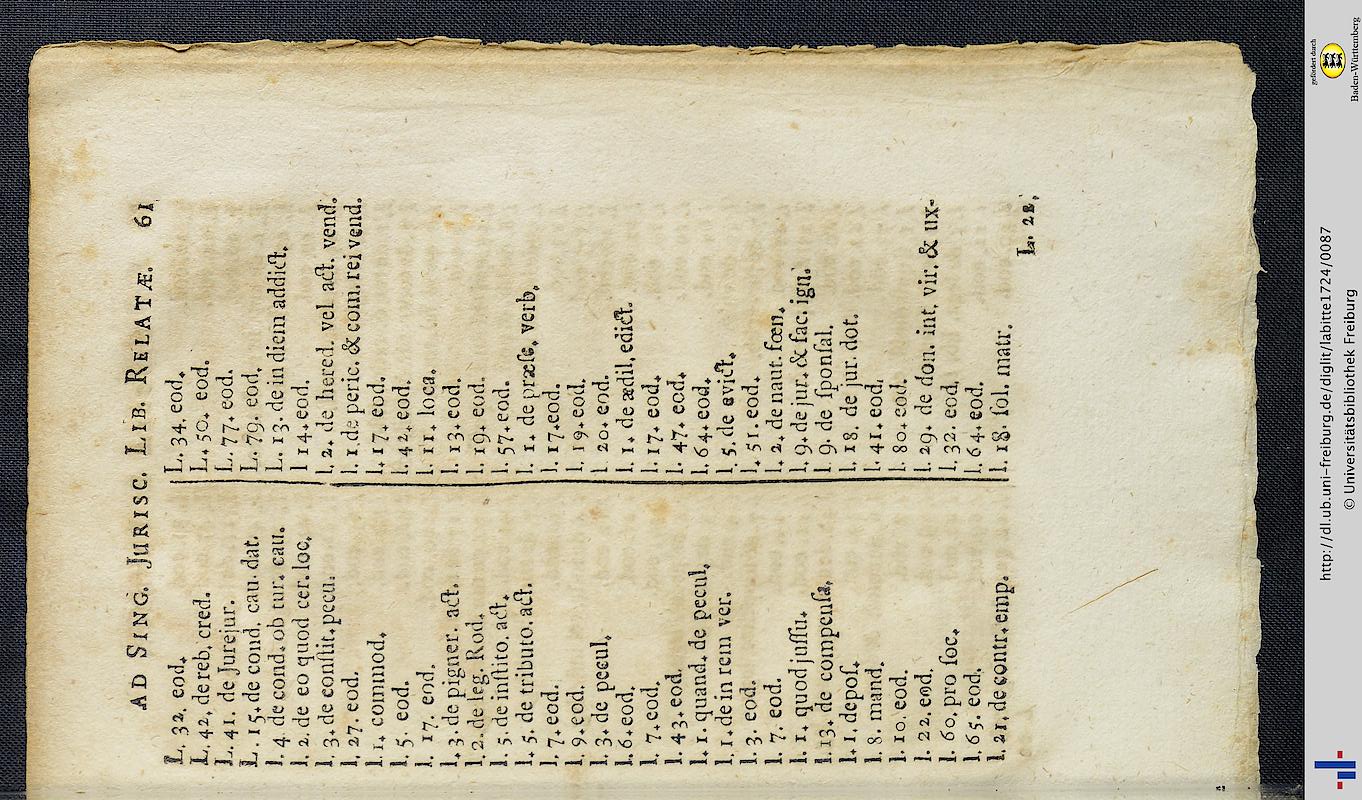 AD SING. JURISC. LIB. RELATÆ. 61
L. 32. eod.
L. 42. de reb. cred.
L. 41. de Jurejur.
L. 15. de cond. cau. dat.
l. 4. de cond. ob tur. cau.
l. 2. de eo quod cer. loc.
l. 3. de conſtit. pecu.
l. 27. eod.
l. 1. commod.
l. 5. eod.
l. 17. eod.
l. 3. de pigner. act.
l. 2. de leg. Rod.
l. 5. de inſtito. act.
l. 5. de tributo. act.
l. 7. eod.
l. 9. eod.
l. 3. de pecul.
l. 6. eod.
l. 7. eod.
l. 43. eod.
l. 1. quand. de pecul.
l. 1. de in rem ver.
l. 3. eod.
l. 7. eod.
l. 1. quod juſſu.
l. 13. de compenſa.
l. 1. depoſ.
l. 8. mand.
l. 10. eod.
l. 22. eod.
l. 60. pro ſoc.
l. 65. eod.
l. 21. de contr. emp.
L. 34. eod.
L. 50. eod.
L. 77. eod.
L. 79. eod.
L. 13. de in diem addict.
l 14. eod.
l. 2. de hered. vel act. vend.
l. 1. de peric. & com. rei vend.
l. 17. eod.
l. 42. eod.
l. 11. loca.
l. 13. eod.
l. 19. eod.
l. 57. eod.
l. 1. de præſc. verb.
l. 17. eod.
l. 19. eod.
l. 20. eod.
l. 1. de ædil. edict.
l. 17. eod.
l. 47. eod.
l. 64. eod.
l. 5. de evict.
l. 51. eod.
l. 2. de naut. fœn.
l. 9. de jur. & fac. ign.
l. 9. de ſponſal.
l. 18. de jur. dot.
l. 41. eod.
l. 80. eod.
l. 29. de don. int. vir. & ux.
l. 32. eod.
l. 64. eod.
l. 18. ſol. matr.
L. 22.
http://dl.ub.uni-freiburg.de/diglit/labitte1724/0087
© Universitätsbibliothek Freiburg
gefördert durch
Baden-Württemberg